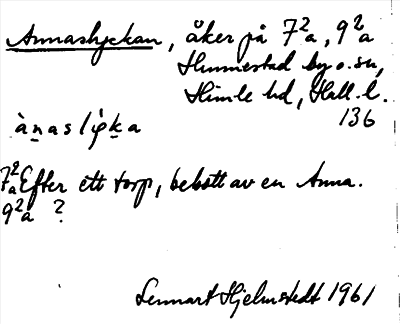 Annaslyckan, åker på 7²a, 9²a
Hunnestad by o. sn,
Himle hd, Hall. l.
136
ànaslỳka
7²a Efter ett torp, bebott av en Anna.
9²a ?
Lennart Hjelmstedt 1961